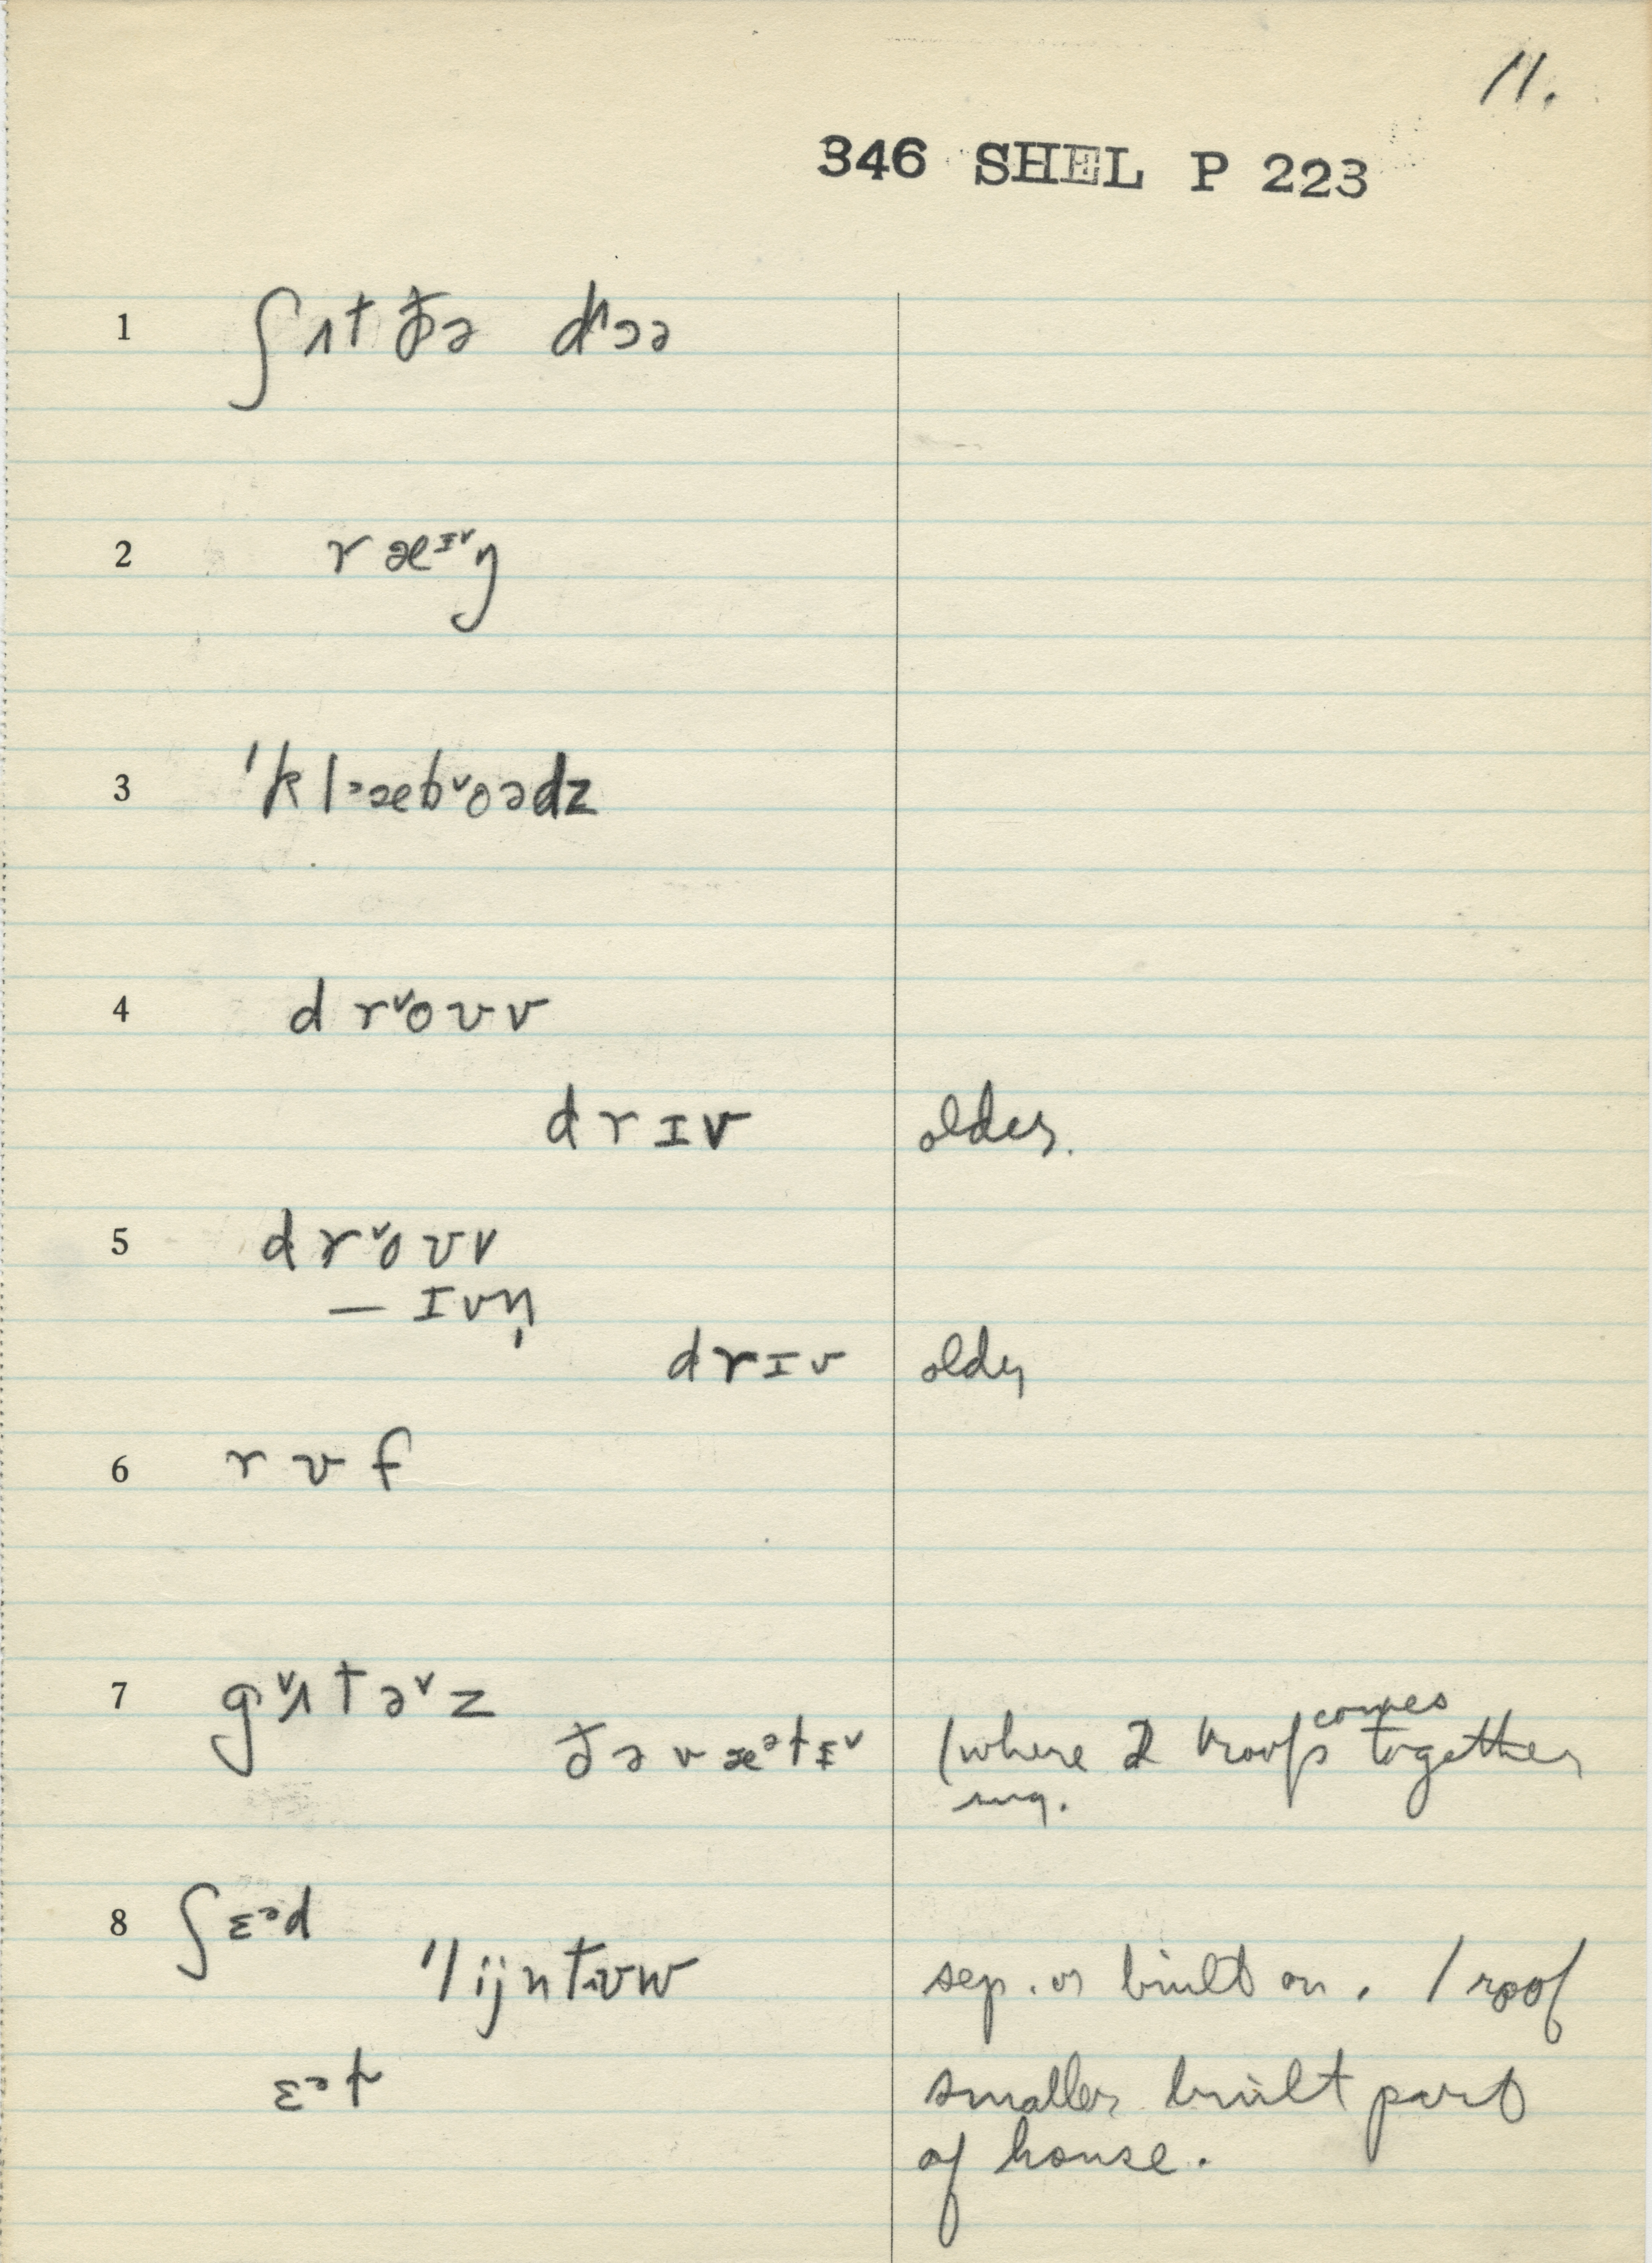 11.
346 SHEL P 223
1 ʃʌt ðə dɔə
2 ræᶦᵛŋ
3 'klᵊæbˇoədz
4 drˇoʊv
drɪv older.
5 drˇoʊv
— ɪvn̩
drɪv older
6 rʊf
7 gˇʌtəˇz
ðə væᵊtɪˇ (where 2 roofs comes together
sing.
8 ʃɛᵊd
'lijntʊw sep. or built on. 1 roof
ɛᵊt smaller built part
of house.